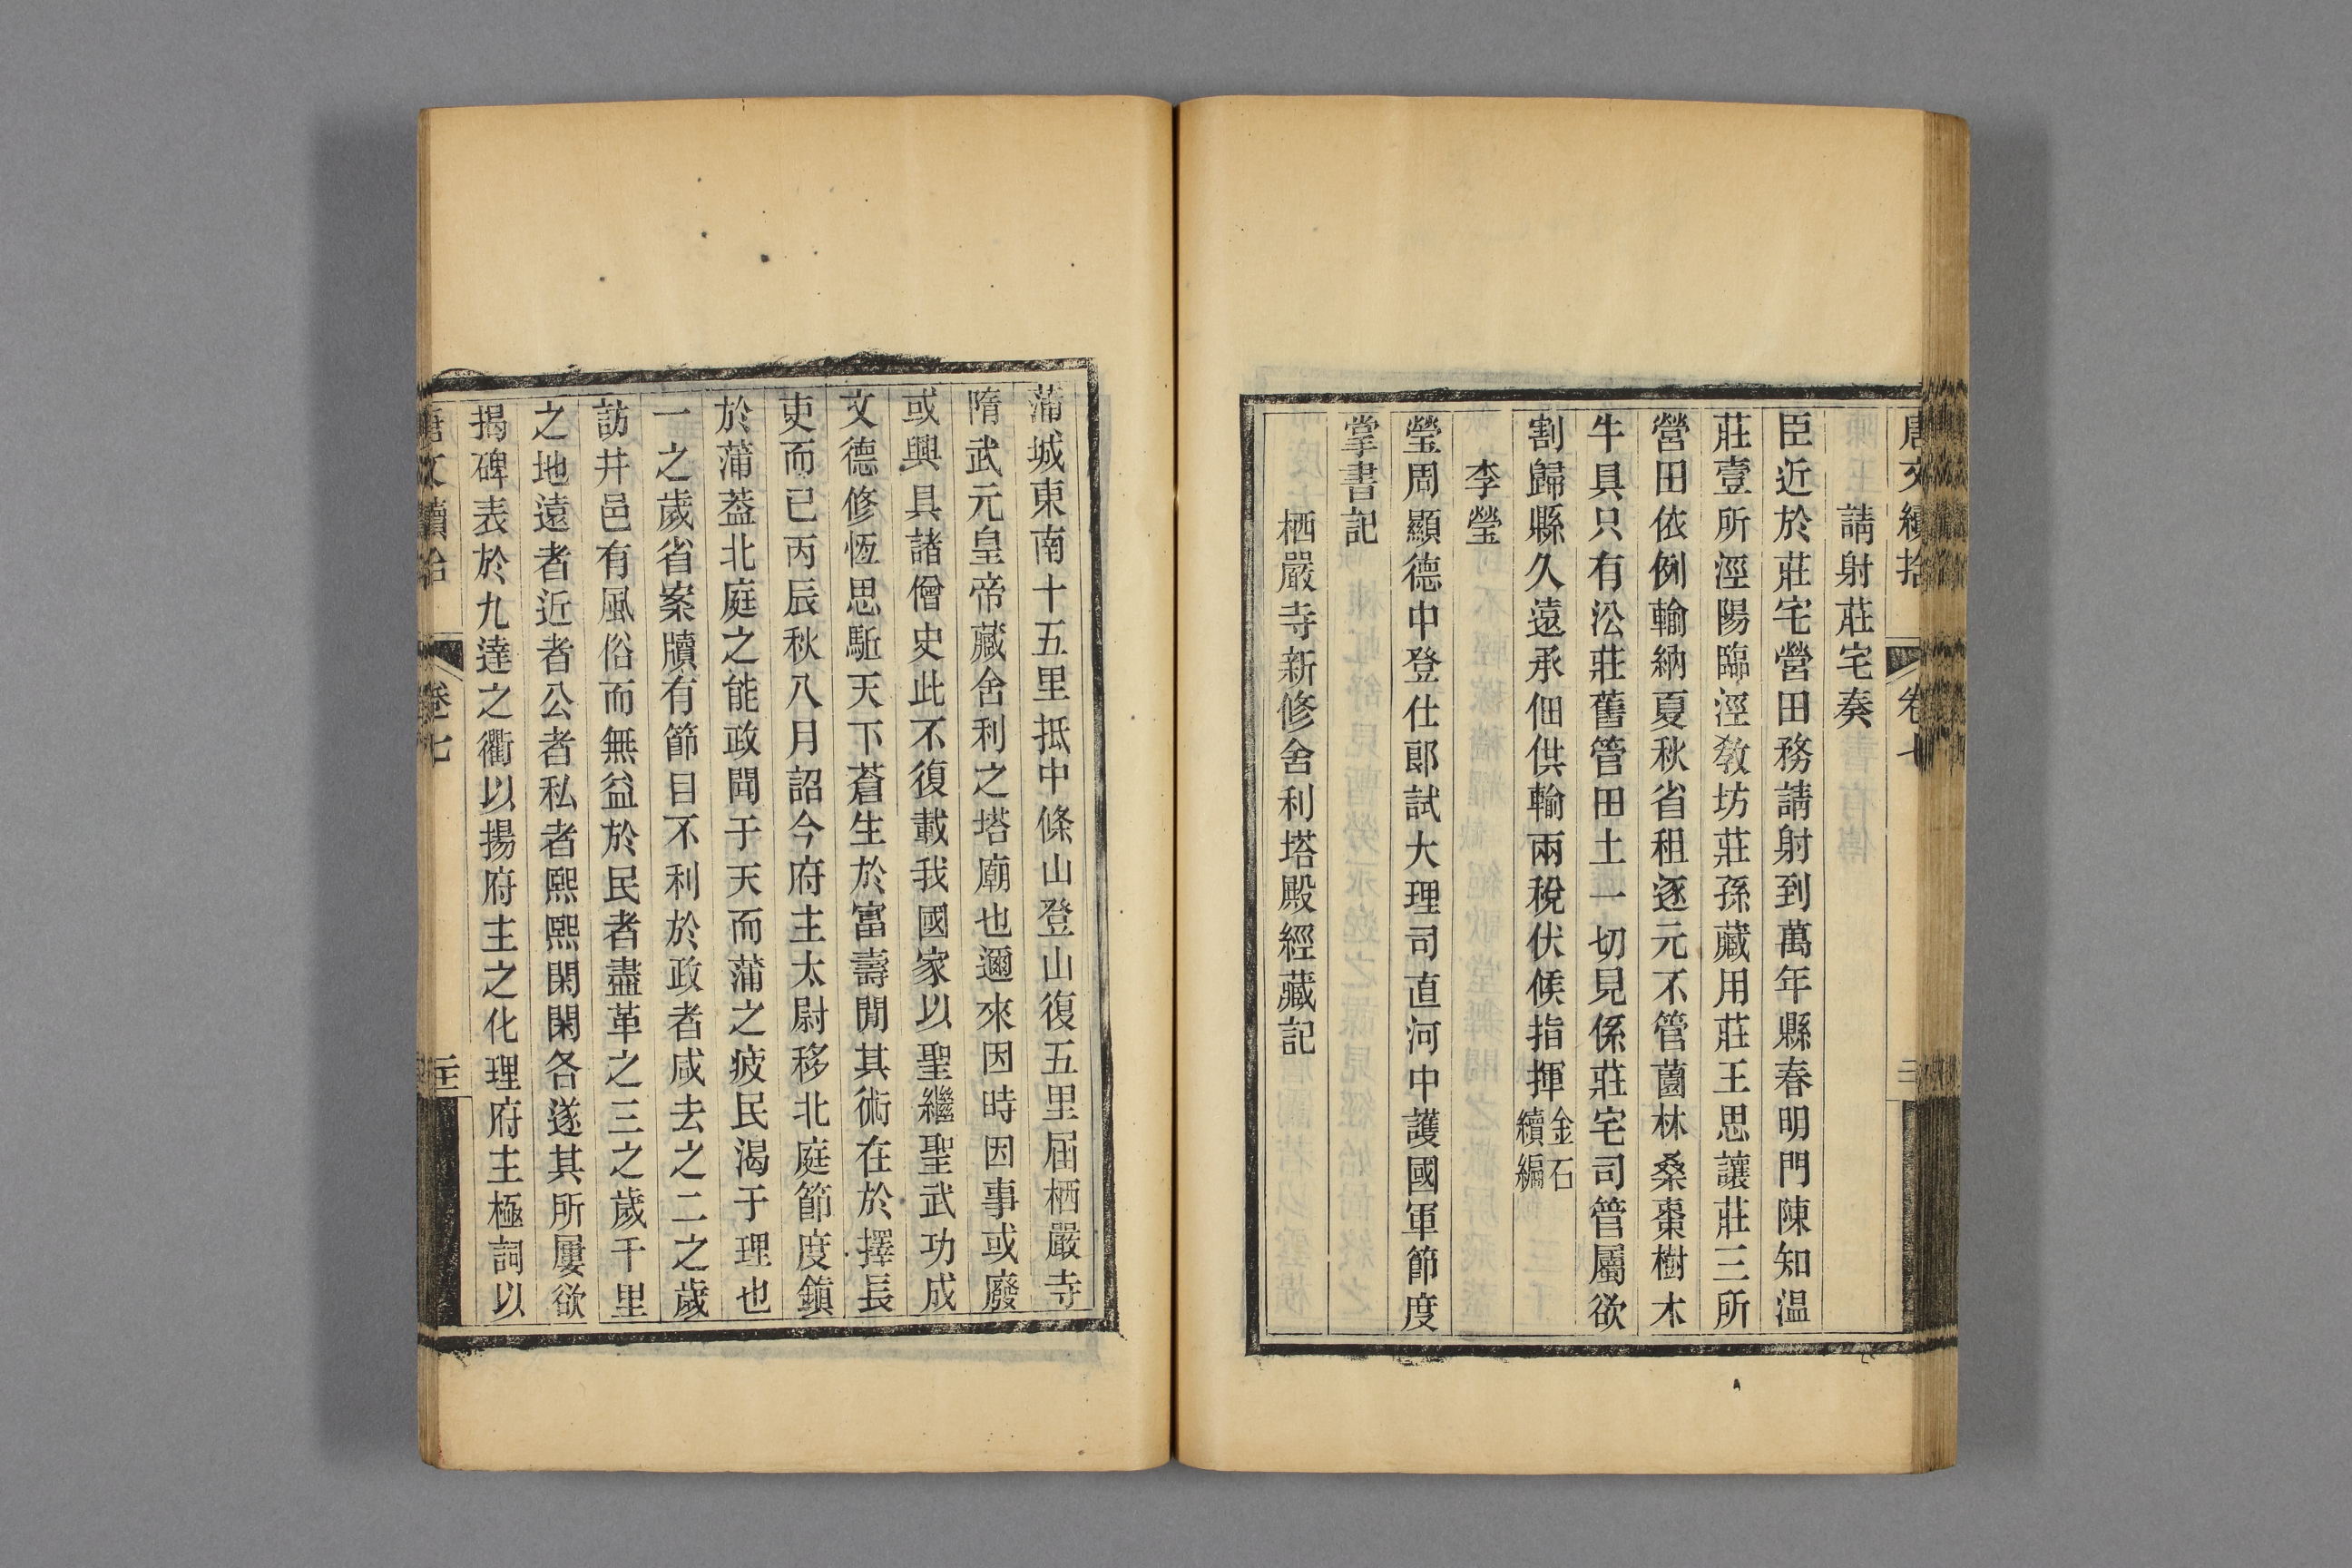 唐文續拾 卷七
請射莊宅奏
臣近於莊宅營田務請射到萬年縣春明門陳知温
莊壹所涇陽臨涇敎坊莊孫藏用莊王思讓莊三所
營田依例輸納夏秋省租逐元不管薗林桑棗樹木
牛具只有㳂莊舊管田土一切見係莊宅司管屬欲
割歸縣久遠承佃供輸兩稅伏候指揮金石續編
李瑩
瑩周顯德中登仕郞試大理司直河中護國軍節度
掌書記
栖嚴寺新修舍利塔殿經藏記
蒲城東南十五里抵中條山登山復五里屆栖嚴寺
隋武元皇帝藏舍利之塔廟也邇來因時因事或廢
或興具諸僧史此不復載我國家以聖繼聖武功成
文德修恆思駈天下蒼生於富壽閒其術在於擇長
吏而已丙辰秋八月詔今府主太尉移北庭節度鎭
於蒲葢北庭之能政聞于天而蒲之疲民渴于理也
一之歲省案牘有節目不利於政者咸去之二之歲
訪井邑有風俗而無益於民者盡革之三之歲千里
之地遠者近者公者私者熙熙閑閑各遂其所屢欲
揭碑表於九達之衢以揚府主之化理府主極詞以
唐文續拾 卷七